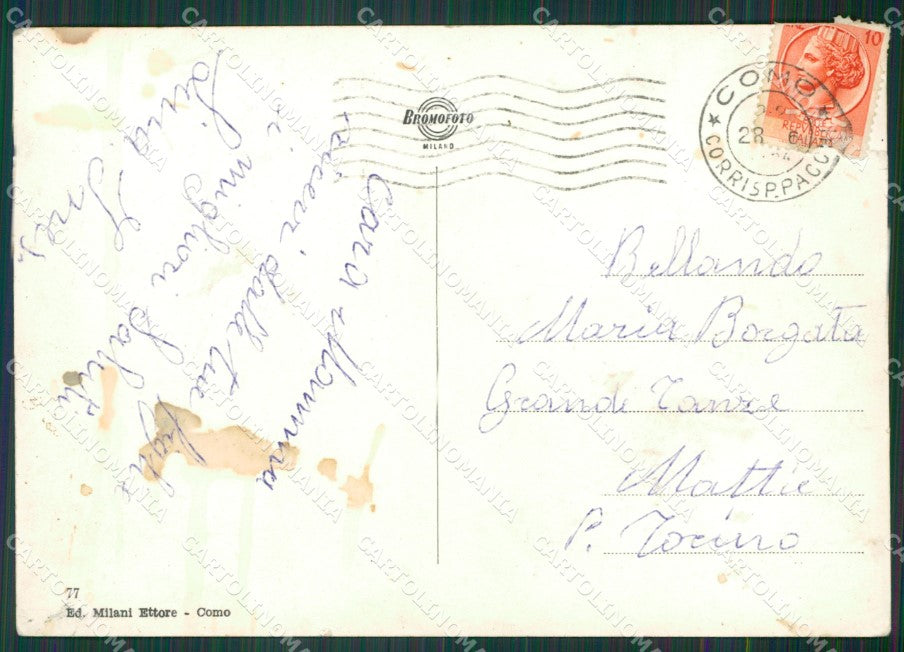 Cara Mamma
ricevi dalle tue figlie
i migliori saluti
Lina
Ines
BROMOFOTO
MILANO
10
COMO
28 6
CORRISP. PACCHI
Bellando
Maria Borgata
Grande Tanze
Mattie
P. Torino
77
Ed. Milani Ettore - Como
CARTOLINOMANIA